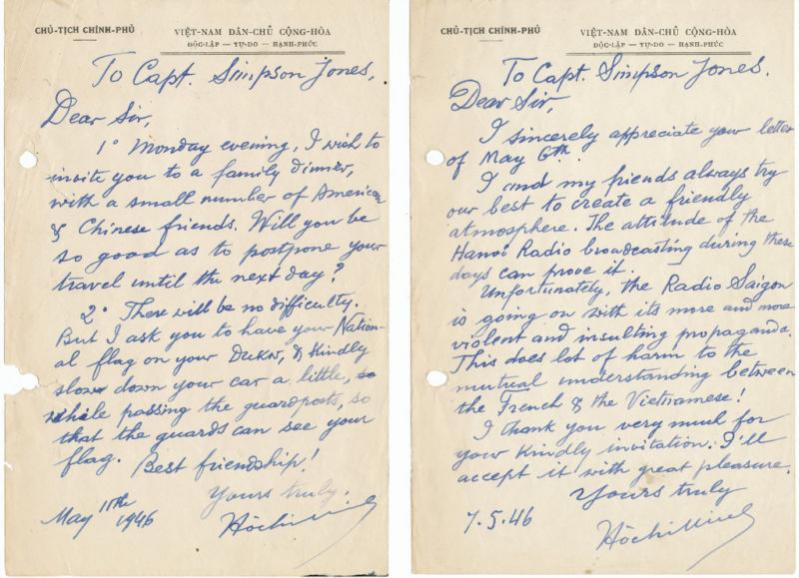 CHỦ-TỊCH CHÍNH-PHỦ
VIỆT-NAM DÂN-CHỦ CỘNG-HÒA
ĐỘC-LẬP — TỰ-DO — HẠNH-PHÚC
To Capt. Simpson Jones,
Dear Sir,
1° Monday evening, I wish to
invite you to a family dinner,
with a small number of American
& Chinese friends. Will you be
so good as to postpone your
travel until the next day?
2° There will be no difficulty.
But I ask you to have your Nation-
al flag on your & Kindly
slow down your car a little,
while passing the guardposts, so
that the guards can see your
flag. Best friendship!
Yours truly,
May 11th 1946
Hồchiminh
CHỦ-TỊCH CHÍNH-PHỦ
VIỆT-NAM DÂN-CHỦ CỘNG-HÒA
ĐỘC-LẬP — TỰ-DO — HẠNH-PHÚC
To Capt. Simpson Jones.
Dear Sir,
I sincerely appreciate your letter
of May 6th.
I and my friends always try
our best to create a friendly
atmosphere. The attitude of the
Hanoi Radio broadcasting during these
days can prove it.
Unfortunately, the Radio Saigon
is going on with its more and more
violent and insulting propaganda.
This does lot of harm to the
mutual understanding between
the French & the Vietnamese!
I thank you very much for
your Kindly invitation. I'll
accept it with great pleasure.
Yours truly
7.5.46
Hồchiminh